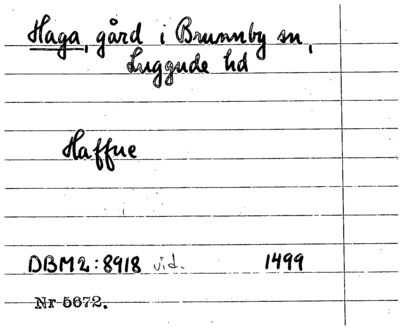 Haga, gård i Brunnby sn,
Luggude hd
Haffue
DBM2:8918 vid. 1499
Nr 5672.